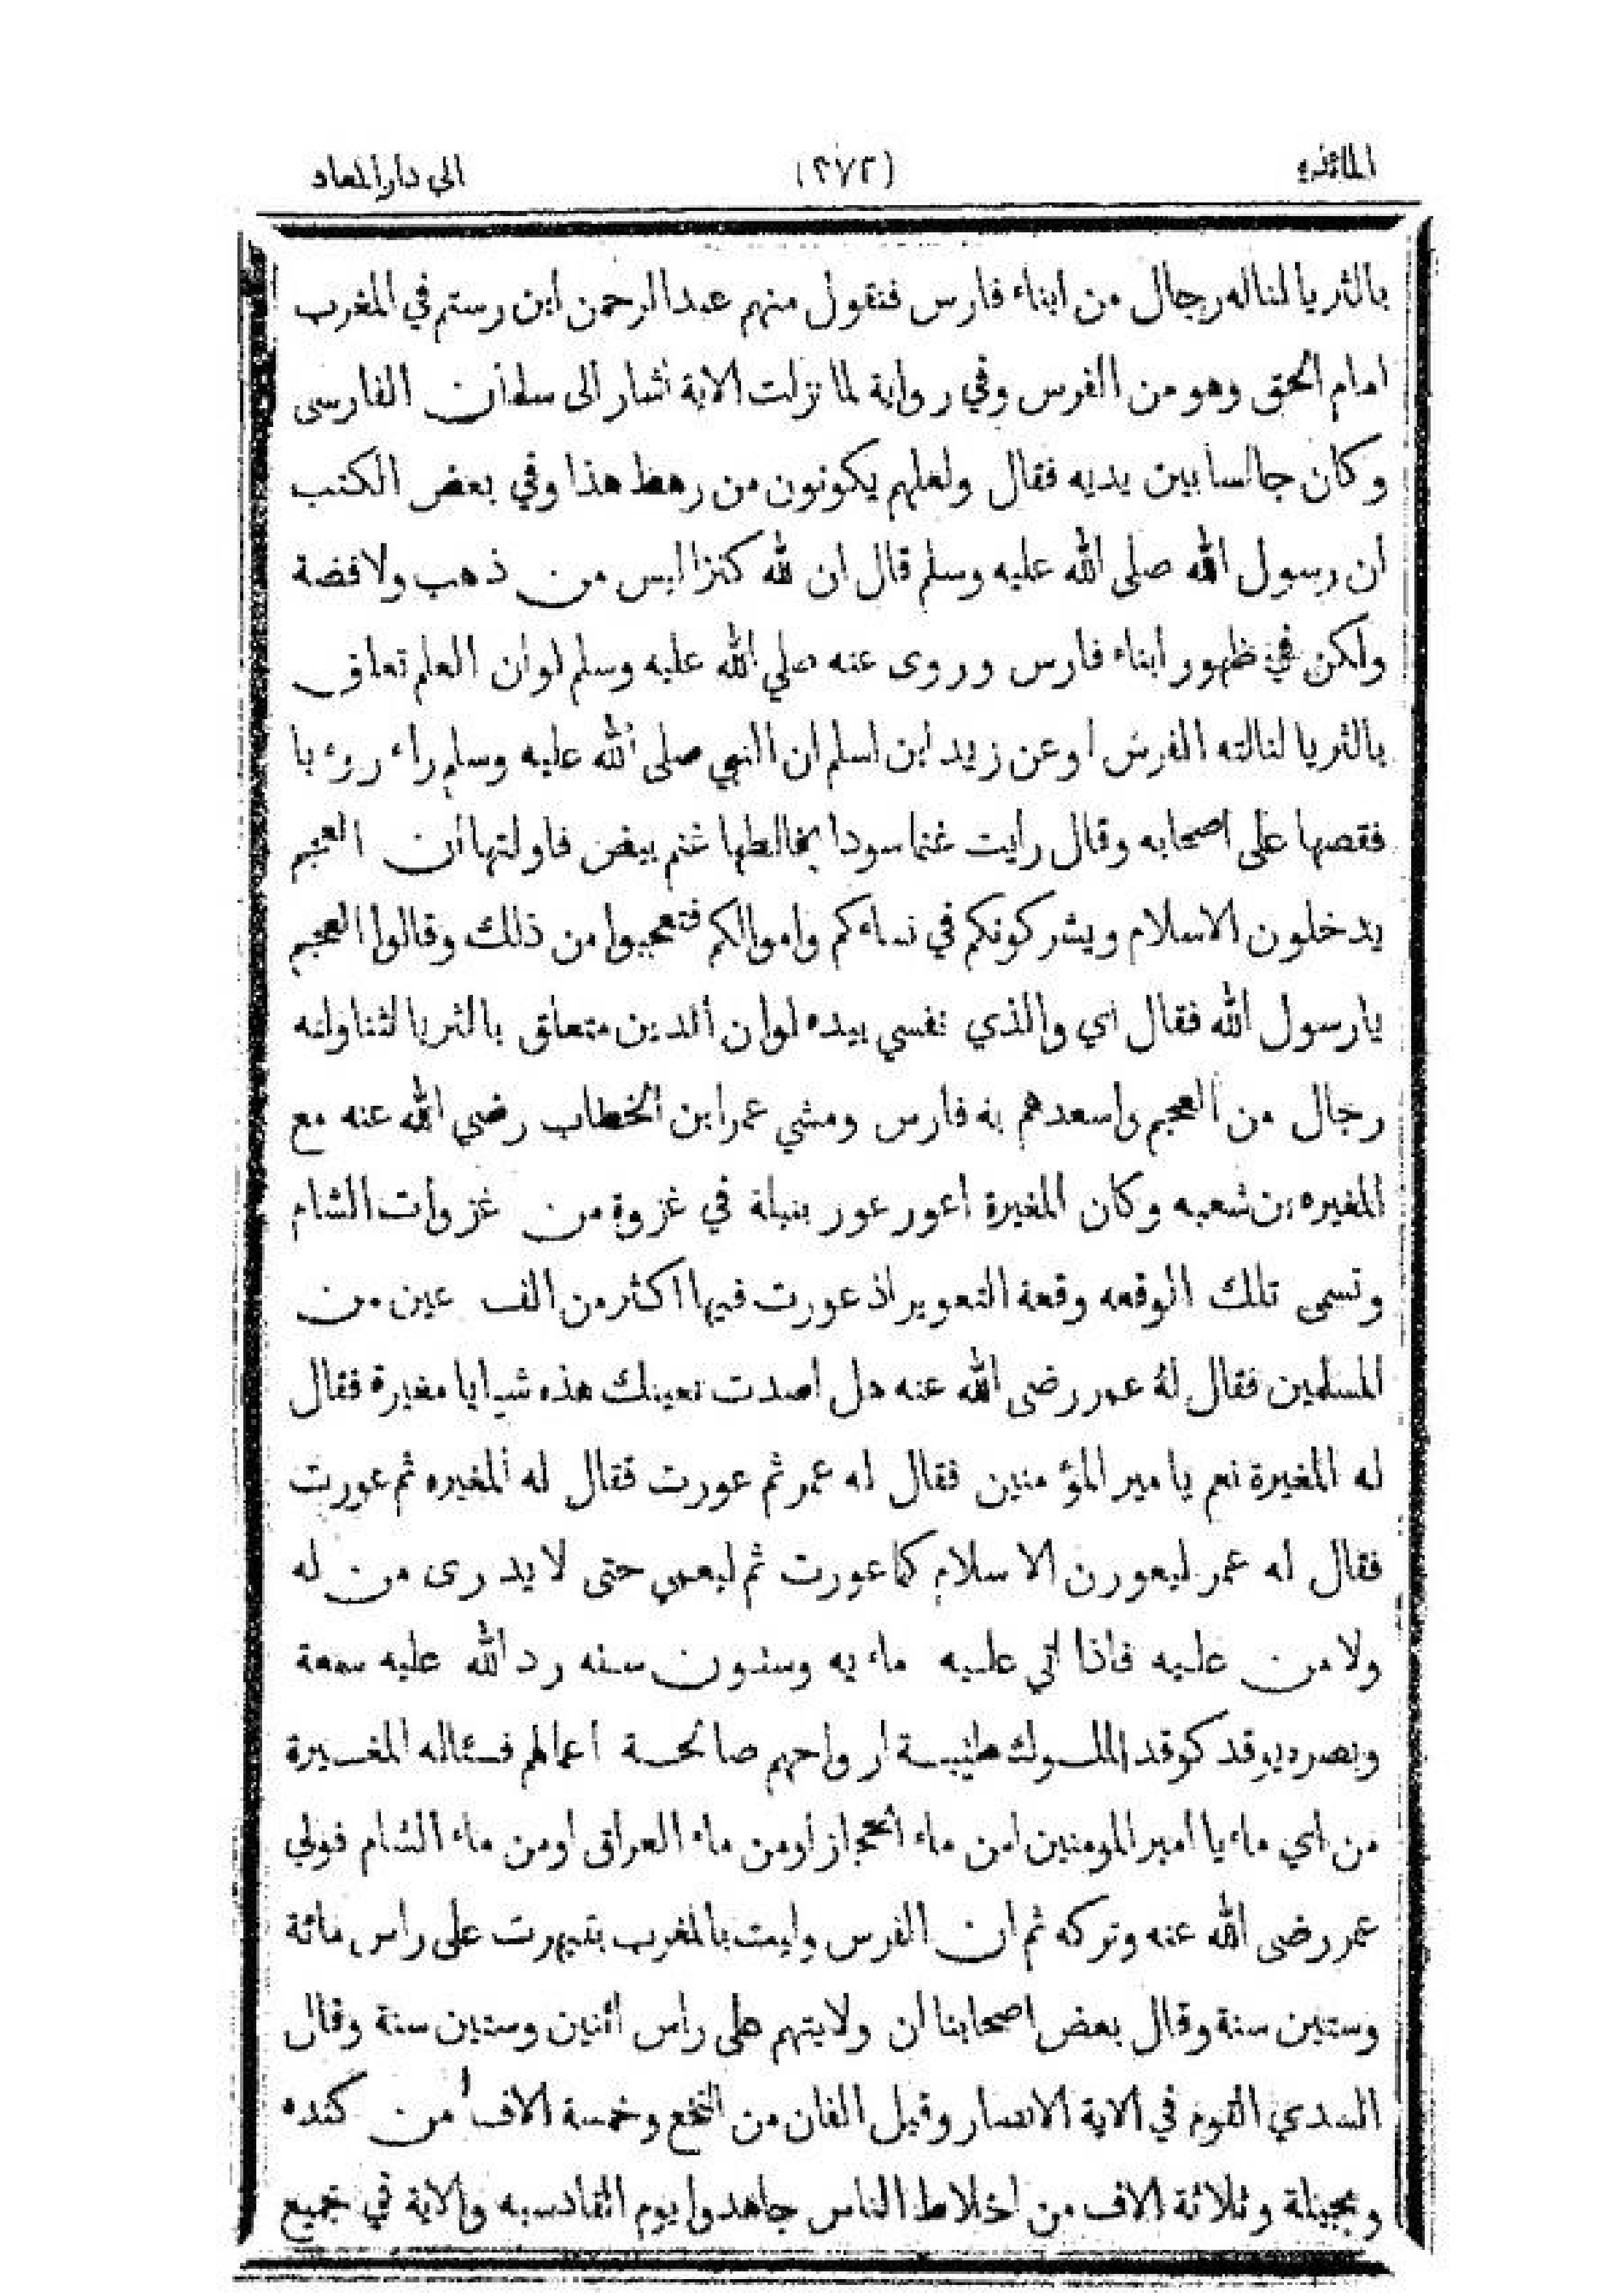 المائدة (٢٧٢) الى دار المعاد
بالثريا لناله رجال من ابناء فارس فنقول منهم عبد الرحمن ابن رستم في المغرب
امام الحق وهو من الفرس وفي رواية لما نزلت الاية أشار الى سلمان الفارسى
وكان جالسا بين يديه فقال ولعلهم يكونون من رهط هذا وفي بعض الكتب
ان رسول الله صلى الله عليه وسلم قال ان لله كنزا ليس من ذهب ولا فضة
ولكن في ظهور أبناء فارس وروى عنه صلي الله عليه وسلم لو ان العلم تعلق
بالثريا لنالته الفرس اوعن زيد ابن اسلم ان النبي صلى الله عليه وسلم راء روءيا
فقصها على اصحابه وقال رايت غنما سودا يخالطها غنم بيض فاولتها ان العجم
يدخلون الاسلام ويشركونكم في نساءكم واموالكم فتعجبوا من ذلك وقالوا العجم
يارسول الله فقال اي والذي نفسي بيده لو ان الدين متعلق بالثريا لتناوله
رجال من العجم واسعدهم به فارس ومشي عمر ابن الخطاب رضي الله عنه مع
المغيره بن شعبه وكان المغيرة اعور عور بنبلة في غزوة من غزوات الشام
وتسمى تلك الوقعه وقعة التعوير اذ عورت فيها اكثر من الف عين من
المسلمين فقال له عمر رضى الله عنه هل اصدت بعينك هذه شيا يا مغيرة فقال
له المغيرة نعم يا مير المؤمنين فقال له عمر ثم عورت فقال له المغيره ثم عورت
فقال له عمر ليعورن الاسلام كما عورت ثم ليعمى حتى لا يدرى من له
ولا من عليه فاذا اتي عليه ماءيه وستون سنه رد الله عليه سمعة
وبصره بوفد كوفد الملوك طيبة ارواحهم صالحة اعمالهم فسئاله المغيرة
من اي ماء يا امير المومنين امن ماء الحجاز اومن ماء العراق اومن ماء الشام فولي
عمر رضى الله عنه وتركه ثم ان الفرس وليت بالمغرب بتيهرت على راس مائة
وستين سنة وقال بعض اصحابنا ان ولايتهم على راس اثنين وستين سنة وقال
السدي القوم في الاية الانصار وقيل الفان من النخع وخمسة الاف من كنده
وبجيلة وثلاثة الاف من اخلاط الناس جاهدوا يوم القادسيه والاية في جميع